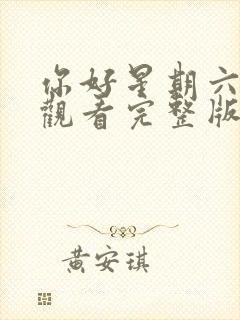 你好星期六
觀看完整版
黃安琪